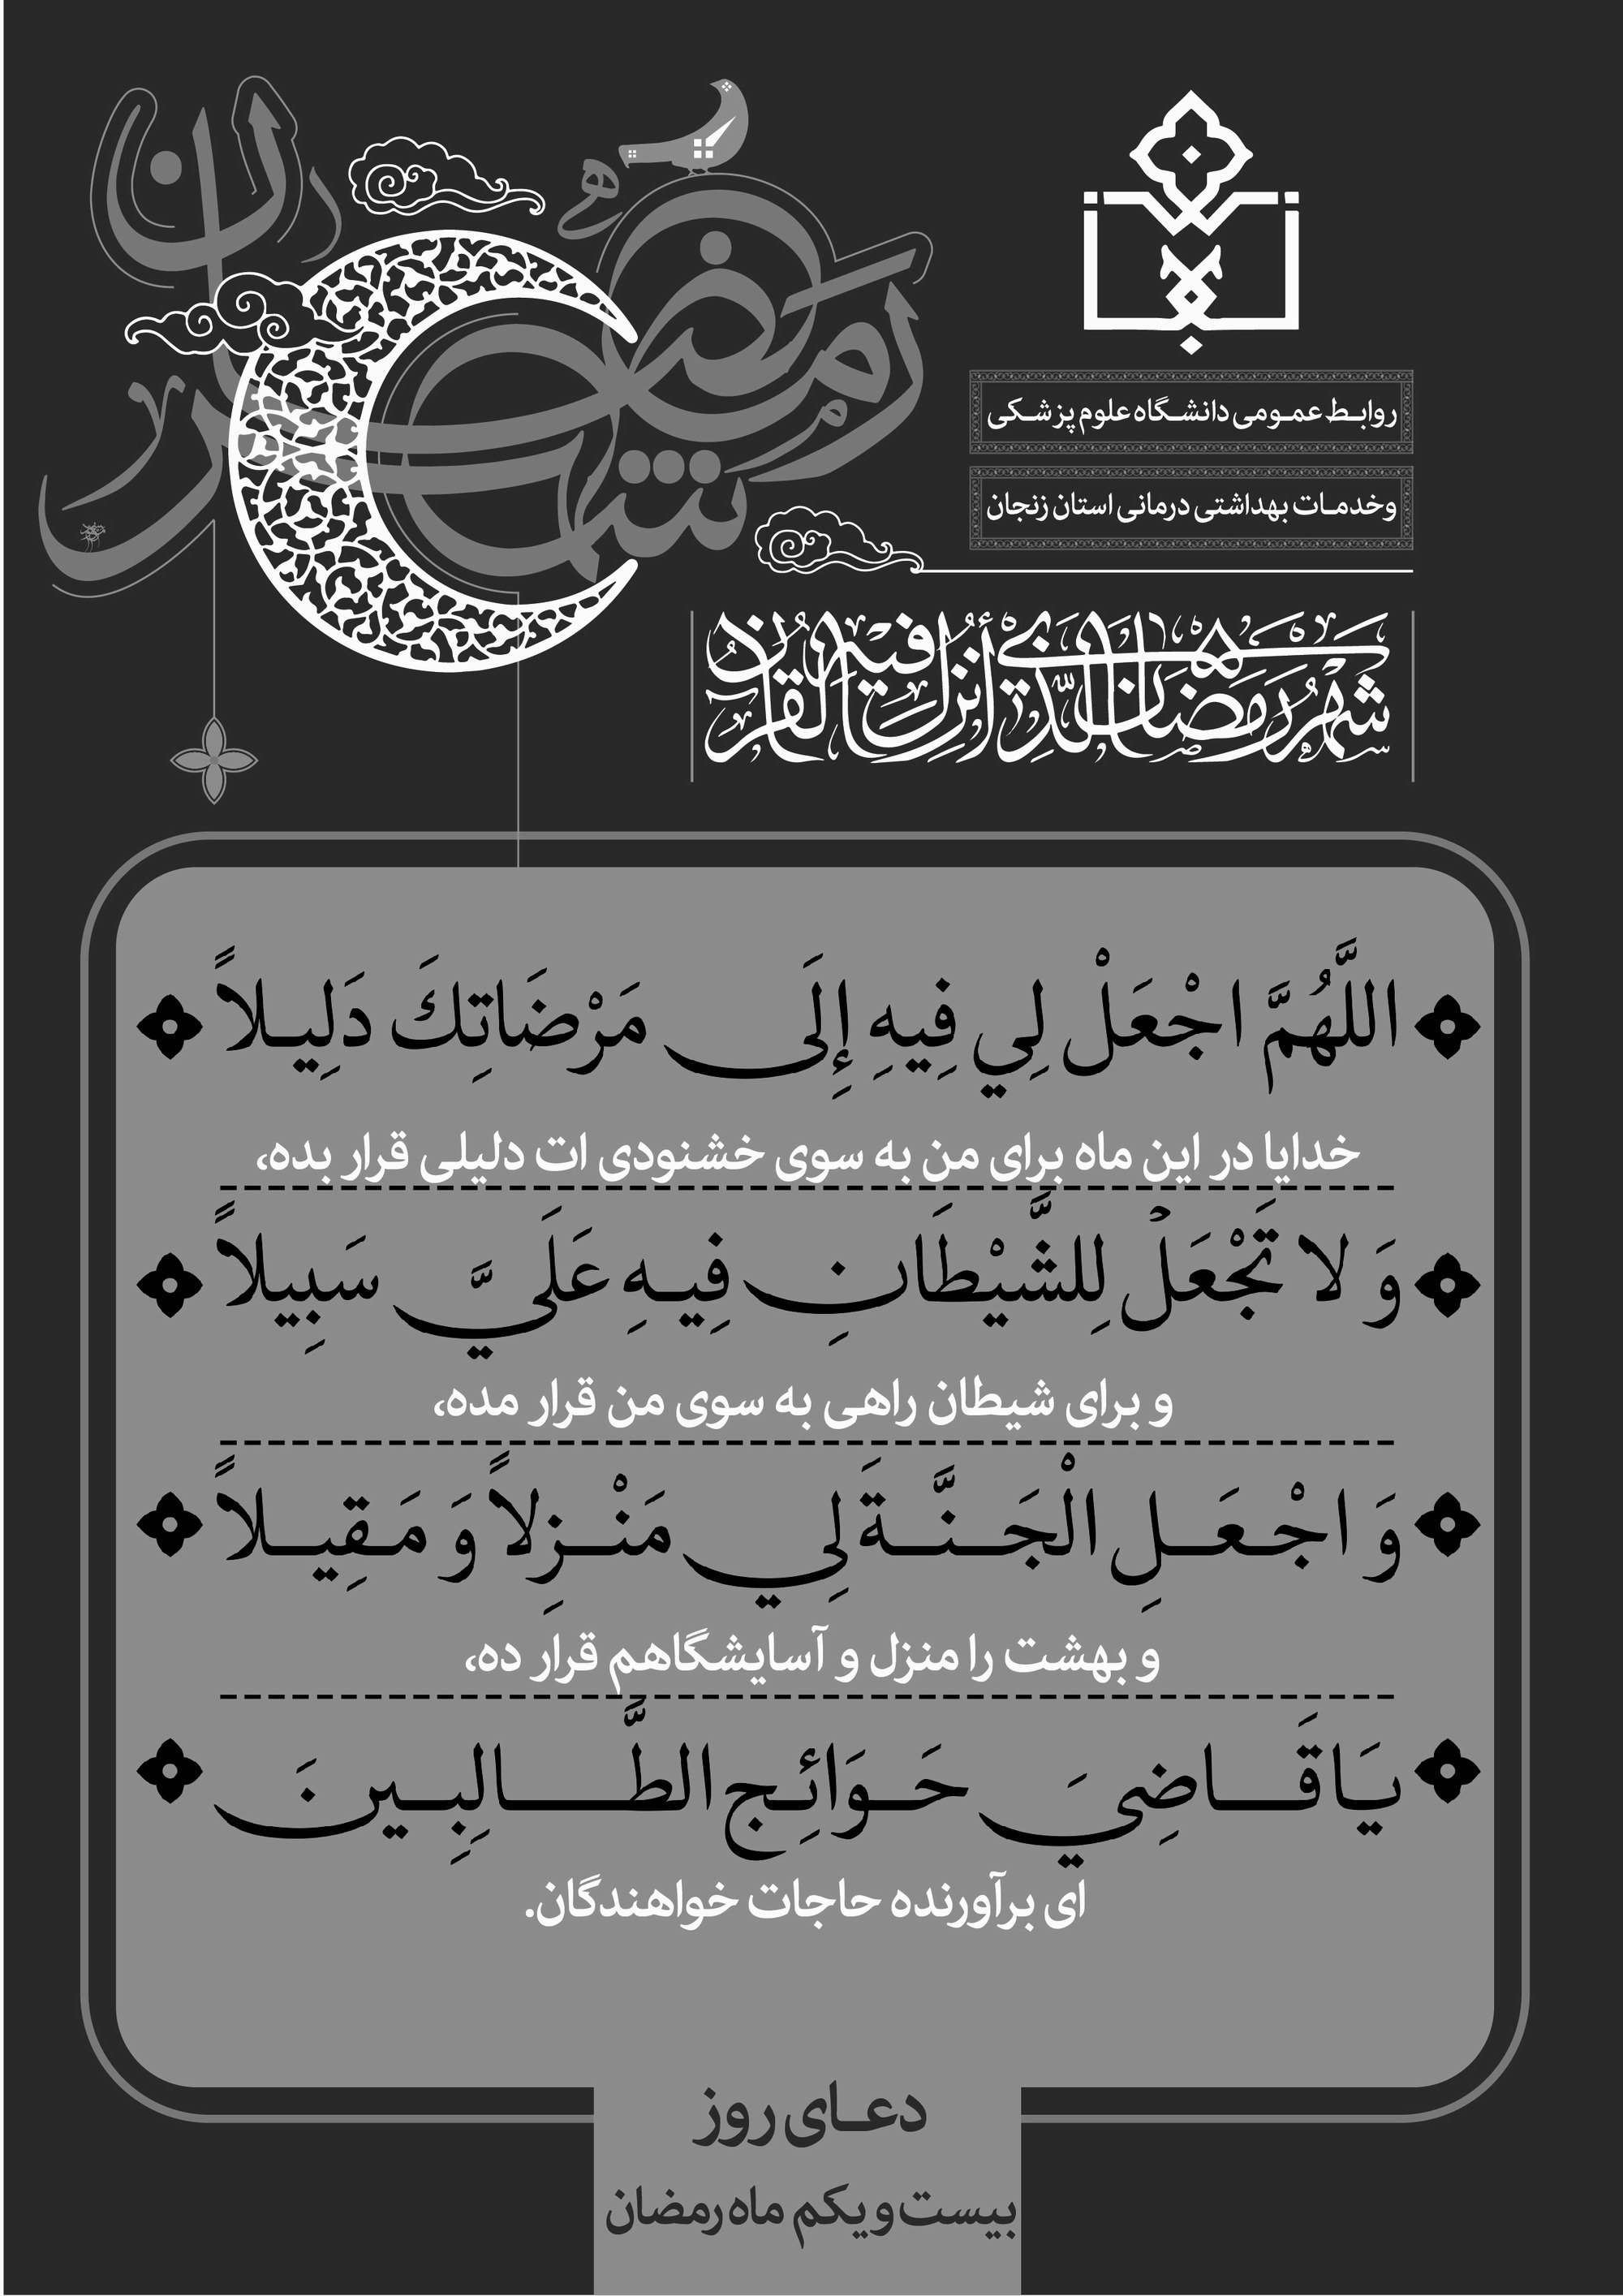 روابط عمومی دانشگاه علوم پزشکی
وخدمات بهداشتی درمانی استان زنجان
شَهْرُ رَمَضَانَ الَّذِي أُنْزِلَ فِيهِ الْقُرْآنُ
اللَّهُمَّ اجْعَلْ لِي فِيهِ إِلَى مَرْضَاتِكَ دَلِيلاً
خدایا در این ماه برای من به سوی خشنودی ات دلیلی قرار بده،
وَ لا تَجْعَلْ لِلشَّيْطَانِ فِيهِ عَلَيَّ سَبِيلاً
و برای شیطان راهی به سوی من قرار مده،
وَ اجْعَلِ الْجَنَّةَ لِي مَنْزِلاً وَ مَقِيلاً
و بهشت را منزل و آسایشگاهم قرار ده،
يَا قَاضِيَ حَوَائِجِ الطَّالِبِينَ
ای برآورنده حاجات خواهندگان.
دعای روز
بیست و یکم ماه رمضان